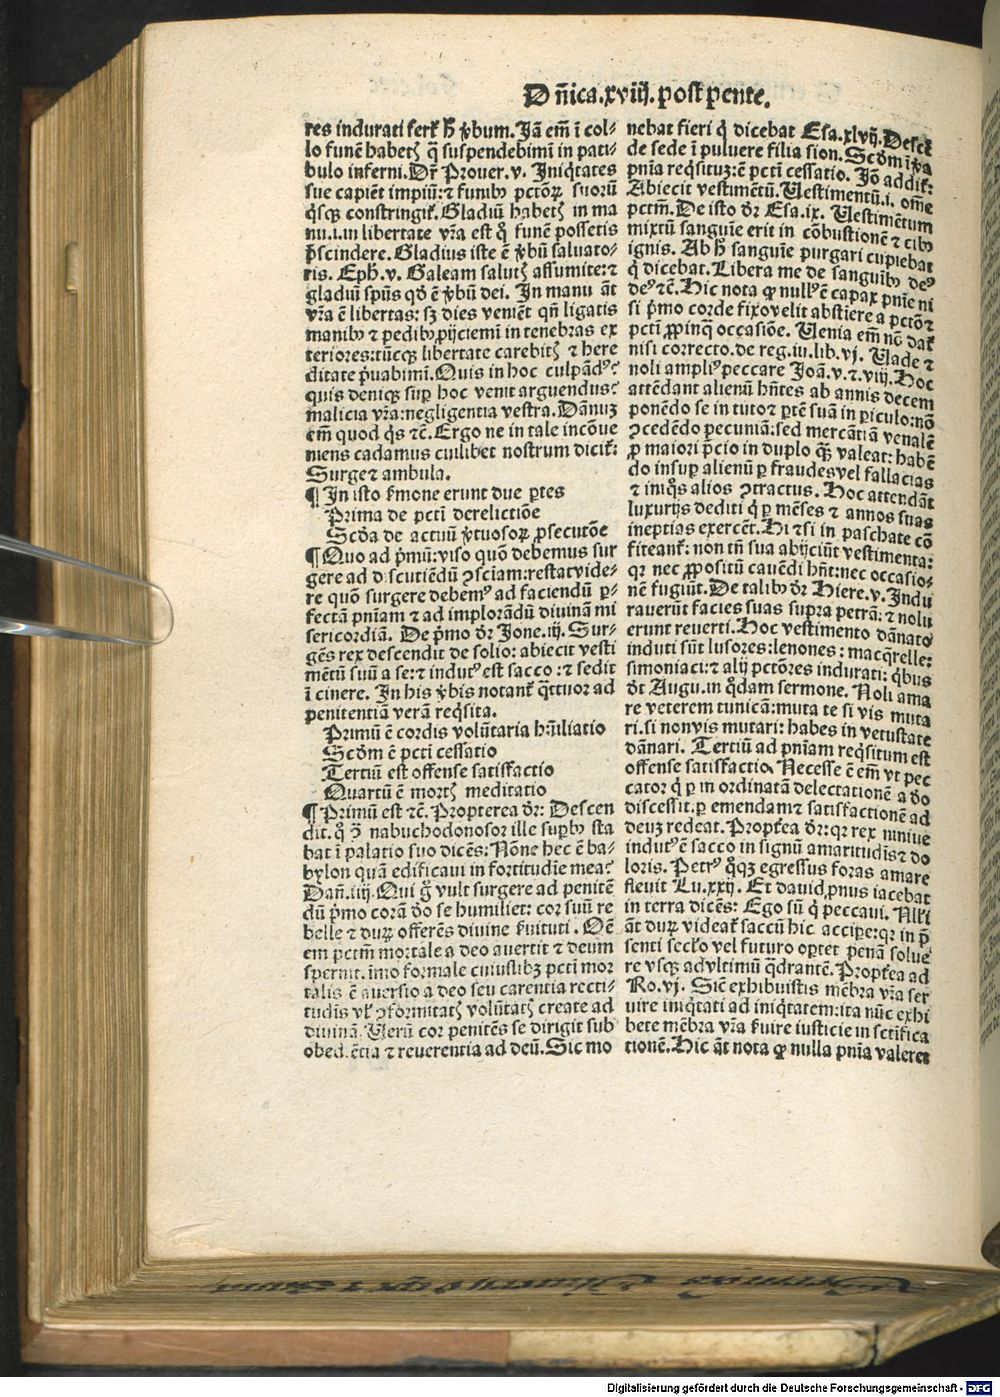 Dñica.xviij.post pente.
res indurati ferẜ h̄ v̄bum. Jā em̄ ī col⸗
lo funē habetꝭ q̄ suspendebimī in pati⸗
bulo inferni. Dr̄ Prouer.v. Iniq̇tates
sue capiēt impiū: ⁊ funibꝰ pctōꝝ suorū
q̇sqꝫ constringiẜ. Gladiū habetꝭ in ma
nu.i.in libertate vr̄a est q̇ funē possetis
p̄scindere. Gladius iste ē v̄bū saluato⸗
ris. Eph̄.v. Galeam salutꝭ assumite: ⁊
gladiū spūs qd̄ ē v̄bū dei. In manu āt
vr̄a ē libertas: sꝫ dies veniēt qn̄ ligatis
manibꝰ ⁊ pedibꝰ ꝓijciemī in tenebras ex
teriores: tūcqꝫ libertate carebitꝭ ⁊ here
ditate p̄uabimī. Quis in hoc culpādꝰ?
quis deniqꝫ suꝑ hoc venit arguendus?
malicia vr̄a: negligentia vestra. Dānuꝫ
em̄ quod q̇s ⁊c̄. Ergo ne in tale incōue
niens cadamus cuilibet nostrum diciẜ:
Surge ⁊ ambula.
¶ In isto ẜmone erunt due ꝑtes
Prima de pctī derelictiōe
Scd̄a de actuū v̄tuosoꝝ ꝓsecutōe
¶ Quo ad p̄mū: viso quō debemus sur
gere ad discutiēdū ꝯsciam: restat vide⸗
re quō surgere debemꝰ ad faciendū ꝑ⸗
fectā pniam ⁊ ad implorādū diuinā mi
sericordiā. De p̄mo dr̄ Jone.iij. Sur⸗
gēs rex descendit de solio: abiecit vesti
mētū suū a se: ⁊ indutꝰ est sacco: ⁊ sedit
ī cinere. In his v̄bis notanẜ q̄ttuor ad
penitentiā verā req̇sita.
Primū ē cordis volūtaria hūiliatio
Scd̄m ē pctī cessatio
Tertiū est offense satisfactio
Quartū ē mortꝭ meditatio
¶ Primū est ⁊c̄. Propterea dr̄: Descen
dit. qͦ ꝯ̄ nabuchodonosor ille suꝑbꝰ sta
bat ī palatio suo dicēs: Nōne hec ē ba⸗
bylon quā edificaui in fortitudīe mea?
Dan̄.iiij. Qui gͦ vult surgere ad penitē
dū p̄mo corā deo se humiliet: cor suū re
belle ⁊ duꝝ offerēs diuine ẜuituti. Oē
em pctm̄ mortale a deo auertit ⁊ deum
spernit. īmo formale cuiuslibꝫ pctī mor
talis ē auersio a deo seu carentia recti⸗
tudīs vel ꝯformitatꝭ volūtatꝭ create ad
diuinā. Verū cor penitēs se dirigit sub
obediētia ⁊ reuerentia ad deū. Sic mo
nebat fieri q̇ dicebat Esa.xlvij. Descē
de sede ī puluere filia sion. Scd̄m ī v̄a
pnīa req̇situꝫ: ē pctī cessatio. Jō addiẜ:
Abiecit vestimētū. Vestimentū.i. omē
pctm̄. De isto dr̄ Esa.ix. Vestimētum
mixtū sanguīe erit in cōbustionē ⁊ cibꝰ
ignis. Ab h̄ sanguīe purgari cupiebat
q̇ dicebat. Libera me de sanguibꝰ deꝰ
deꝰ ⁊c̄. Hic nota ꝙ nullꝰ ē capax pnīe ni
si p̄mo corde fixo velit abstiere a pctō ⁊
pctī ꝓpinq̄ occasiōe. Uenia em̄ nō daẜ
nisi correcto. de reg.iu.lib.vj. Vade ⁊
noli ampliꝰ peccare Joā.v.⁊.viij. Hoc
attēdant alienū hn̄tes ab annis decem
ponēdo se in tuto ⁊ ꝑtē suā in ꝑiculo: nō
ꝯcedēdo pecuniā: sed mercātiā venalē
ꝓ maiori p̄cio in duplo q̄ꝫ valeat: habē
do insuꝑ alienū ꝑ fraudes vel fallacias
⁊ iniq̇s alios ꝯtractus. Hoc attendāt
luxurijs dediti q̇ ꝑ mēses ⁊ annos suas
ineptias exercēt. Hi ⁊ si in paschate cō
fiteanẜ: non tn̄ sua abijciūt vestimenta:
qꝛ nec ꝓpositū cauēdi hn̄t: nec occasio⸗
nē fugiūt. De talibꝰ dr̄ Hiere.v. Indu
rauerūt facies suas supra petrā: ⁊ nolu
erunt reuerti. Hoc vestimento dānato
induti sūt lusores: lenones: macq̄relle:
simoniaci: ⁊ alij pctōres indurati: q̇bus
dt̄ Augu. in q̄dam sermone. Noli ama
re veterem tunicā: muta te si vis muta
ri. si non vis mutari: habes in vetustate
dānari. Tertiū ad pnīam req̇situm est
offense satisfactio. Necesse ē em̄ vt pec
cator q̇ ꝑ inordinatā delectationē a deo
discessit. ꝑ emendam ⁊ satisfactionē ad
deuꝫ redeat. Propẜea dr̄: qꝛ rex niniue
indutꝰ ē sacco in signū amaritudīs ⁊ do
loris. Petrꝰ q̇qꝫ egressus foras amare
fleuit Lu.xxij. Et dauid ꝓnus iacebat
in terra dicēs: Ego sū q̇ peccaui. Alẜi
āt duꝝ videaẜ saccū hic accipe: qꝛ in p̄
senti seclo vel futuro optet penā solue
re vsqꝫ ad vltimū q̄drantē. Propẜea ad
Ro.vj. Sic̄ exhibuistis mēbra vr̄a ser
uire iniq̇tati ad iniq̇tatem: ita nūc exhi
bete mēbra vr̄a ẜuire iusticie in sctīfica
tionē. Hic āt nota ꝙ nulla pnīa valeret
Digitalisierung gefördert durch die Deutsche Forschungsgemeinschaft - DFG